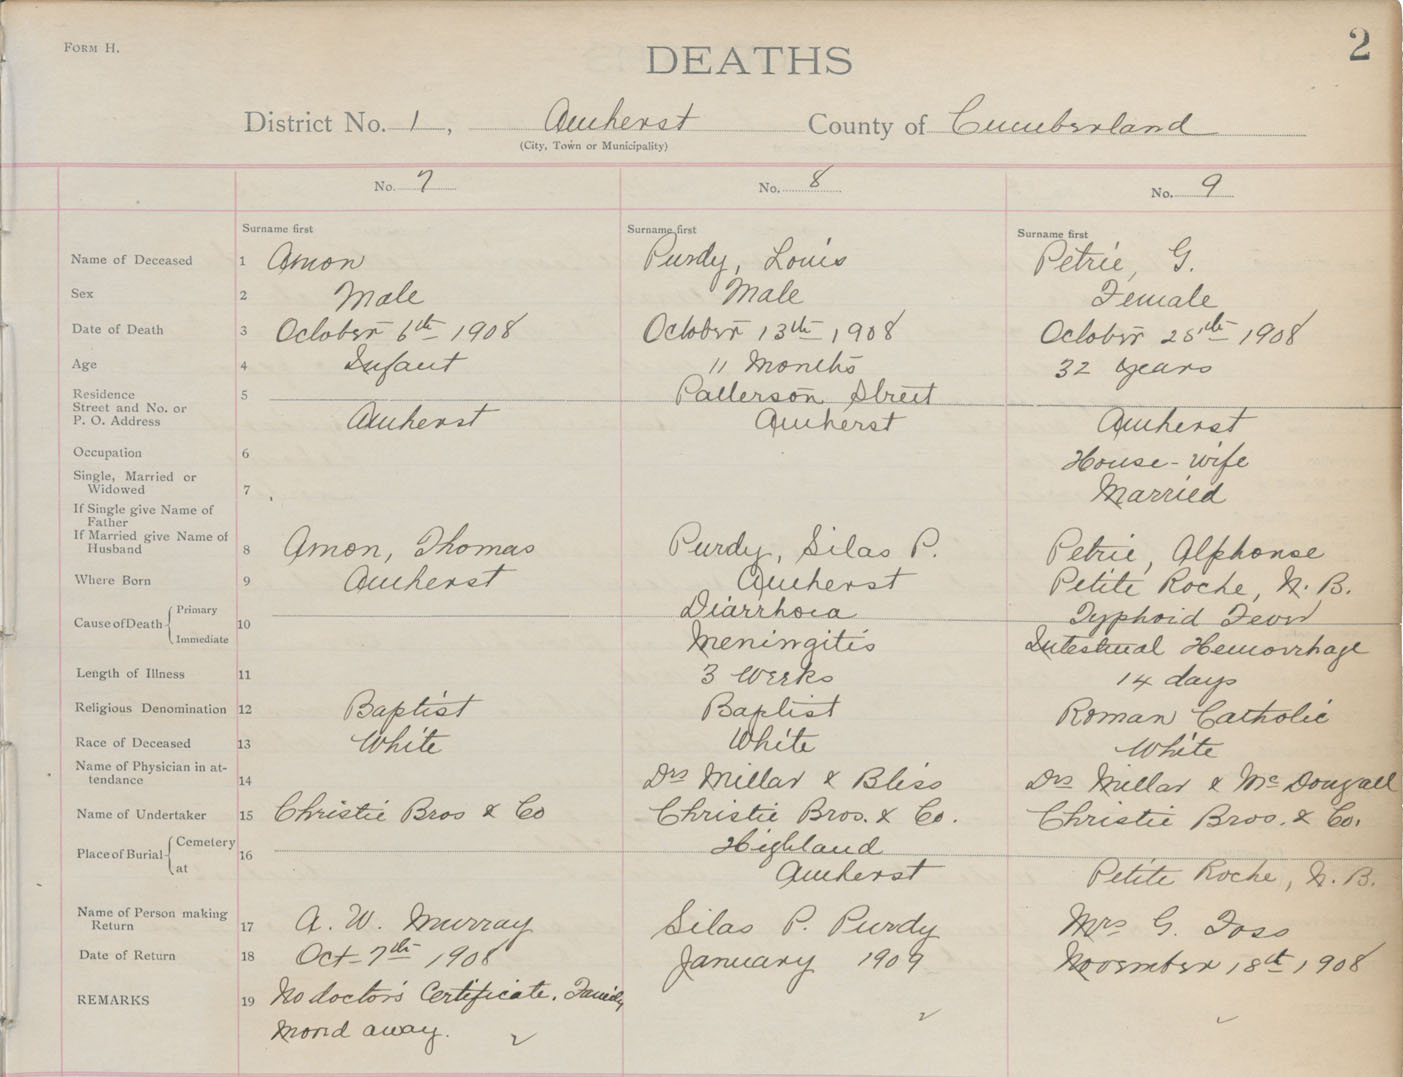 FORM H.
DEATHS
2
District No. 1, Amherst County of Cumberland
(City, Town or Municipality)
No. 7 No. 8 No. 9
Surname first Surname first Surname first
Name of Deceased 1 Amon Purdy, Louis Petrie, G.
Sex 2 Male Male Female
Date of Death 3 October 6th 1908 October 13th 1908 October 25th 1908
Age 4 Infant 11 Months 32 years
Residence 5 Patterson Street
Street and No. or
P. O. Address Amherst Amherst Amherst
Occupation 6 House-wife
Single, Married or
Widowed 7 Married
If Single give Name of
Father
If Married give Name of
Husband 8 Amon, Thomas Purdy, Silas P. Petrie, Alphonse
Where Born 9 Amherst Amherst Petite Roche, N. B.
Cause of Death 10
Primary Diarrhoea Typhoid Fever
Immediate Meningitis Intestinal Hemorrhage
Length of Illness 11 3 Weeks 14 days
Religious Denomination 12 Baptist Baptist Roman Catholic
Race of Deceased 13 White White White
Name of Physician in at-
tendance 14 Drs Millar & Bliss Drs Millar & McDougall
Name of Undertaker 15 Christie Bros & Co Christie Bros. & Co. Christie Bros. & Co.
Place of Burial 16
Cemetery Highland
at Amherst Petite Roche, N. B.
Name of Person making
Return 17 A. W. Murray Silas P. Purdy Mrs G. Foss
Date of Return 18 Oct-7th 1908 January 1909 November 18th 1908
REMARKS 19 No doctor's Certificate. Family
moved away.